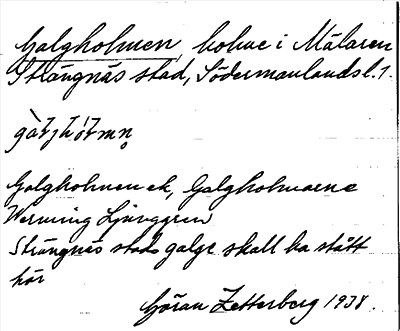 Galgholmen, holme i Mälaren
Strängnäs stad, Södermanlands l.
Galgholmen ek, Galgholmarne
Werming Ljunggren
Strängnäs stads galge skall ha stått
här
Göran Zetterberg 1938.